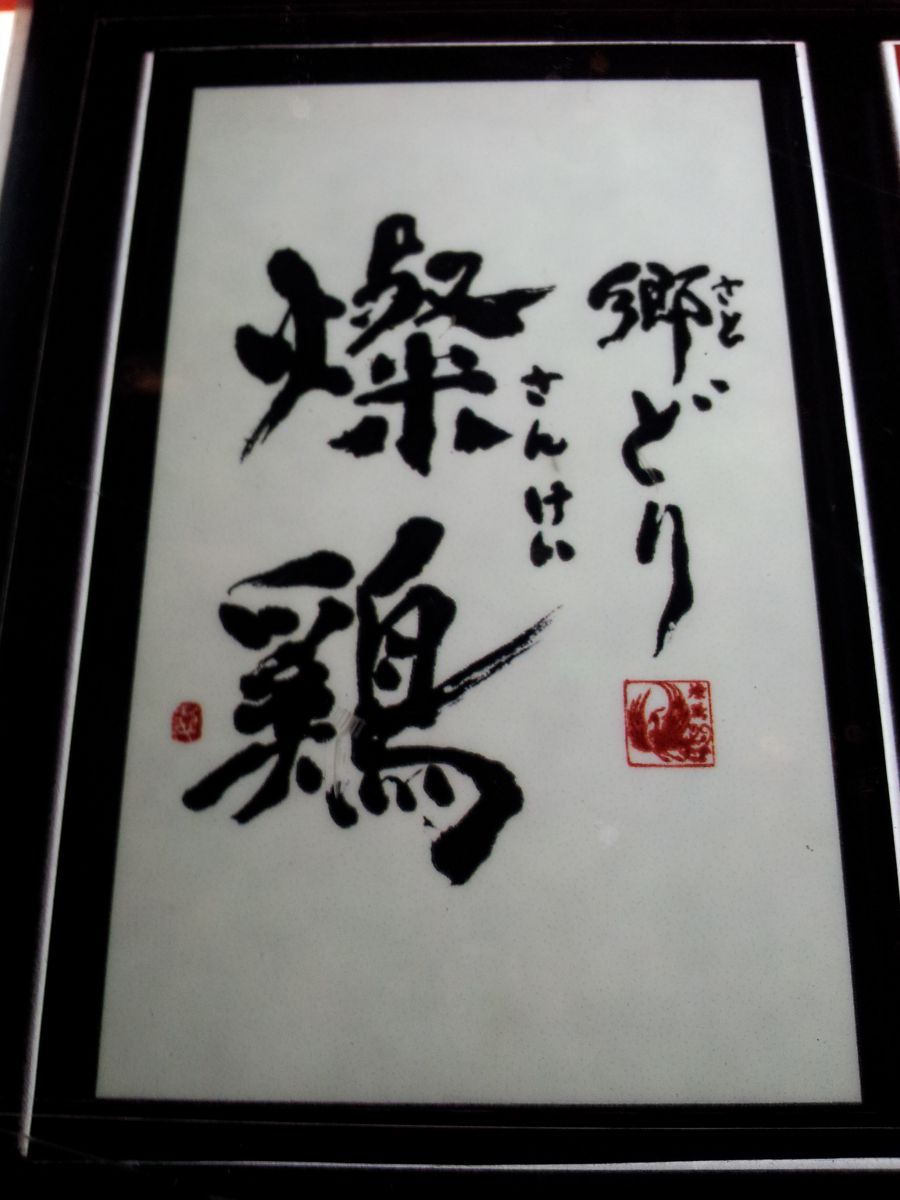 郷どり
さと
燦鶏
さんけい